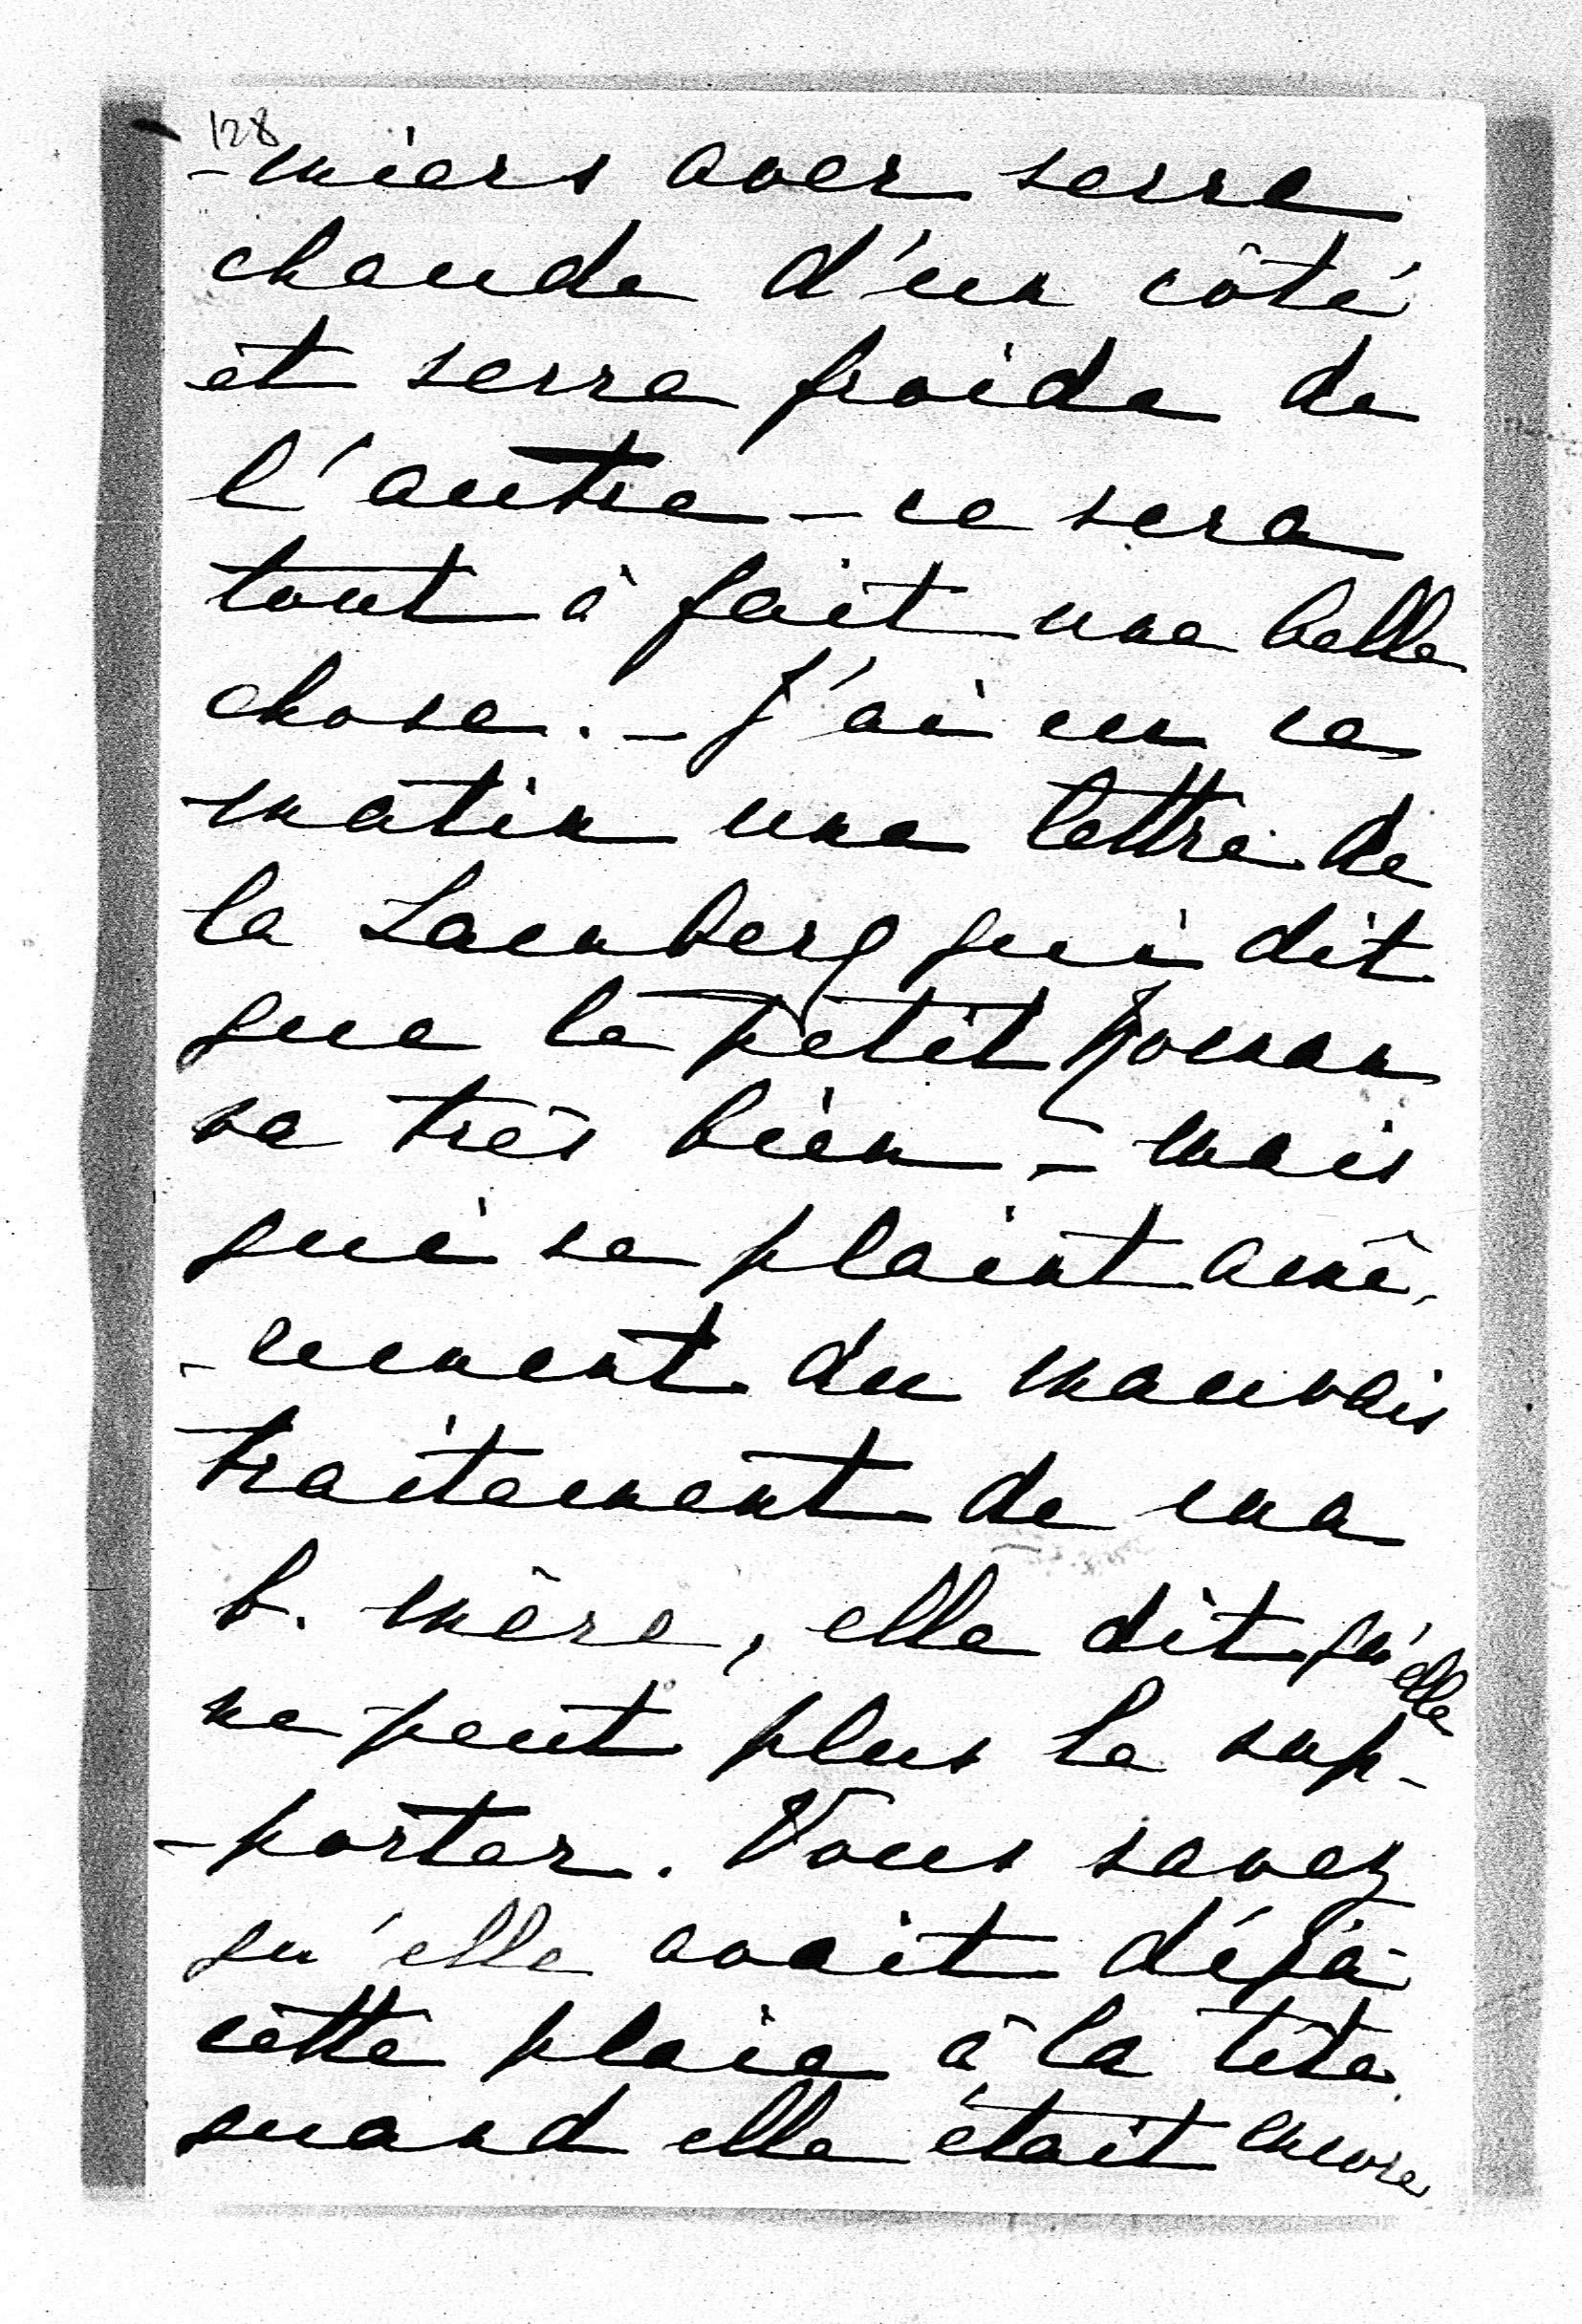 128
-miers avec serre
chaude d'un côté
et serre froide de
l'autre - ce sera
tout à fait une belle
chose. - J'ai eu ce
matin une lettre de
la Lamberg qui dit
que le petit
va très bien - mais
qui se plaint amè-
-rement du mauvais
traitement de ma
b. mère, elle dit qu'elle
ne peut plus le sup-
-porter. Vous savez
qu'elle avait déjà
cette plaie à la tête
quand elle était encore